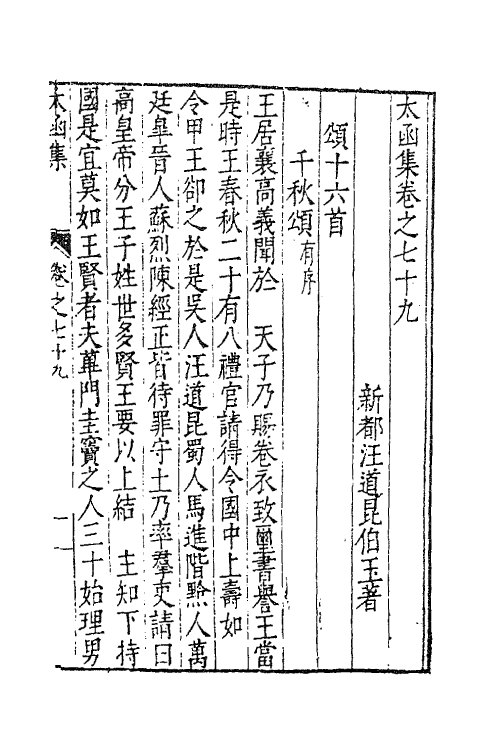 太函集卷之七十九
新都汪道昆伯玉著
頌十六首
千秋頌有序
王居襄高義聞於　天子乃賜卷衣致璽書譽王當
是時王春秋二十有八禮官請得令國中上壽如
令甲王卻之於是吳人汪道昆蜀人馬進階黥人萬
廷臯晉人蘇烈陳經正皆待罪守土乃率羣吏請曰
高皇帝分王子姓世多賢王要以上結　主知下持
國是宜莫如王賢者夫蓽門圭竇之人三十始理男
太函集
卷之七十九
一